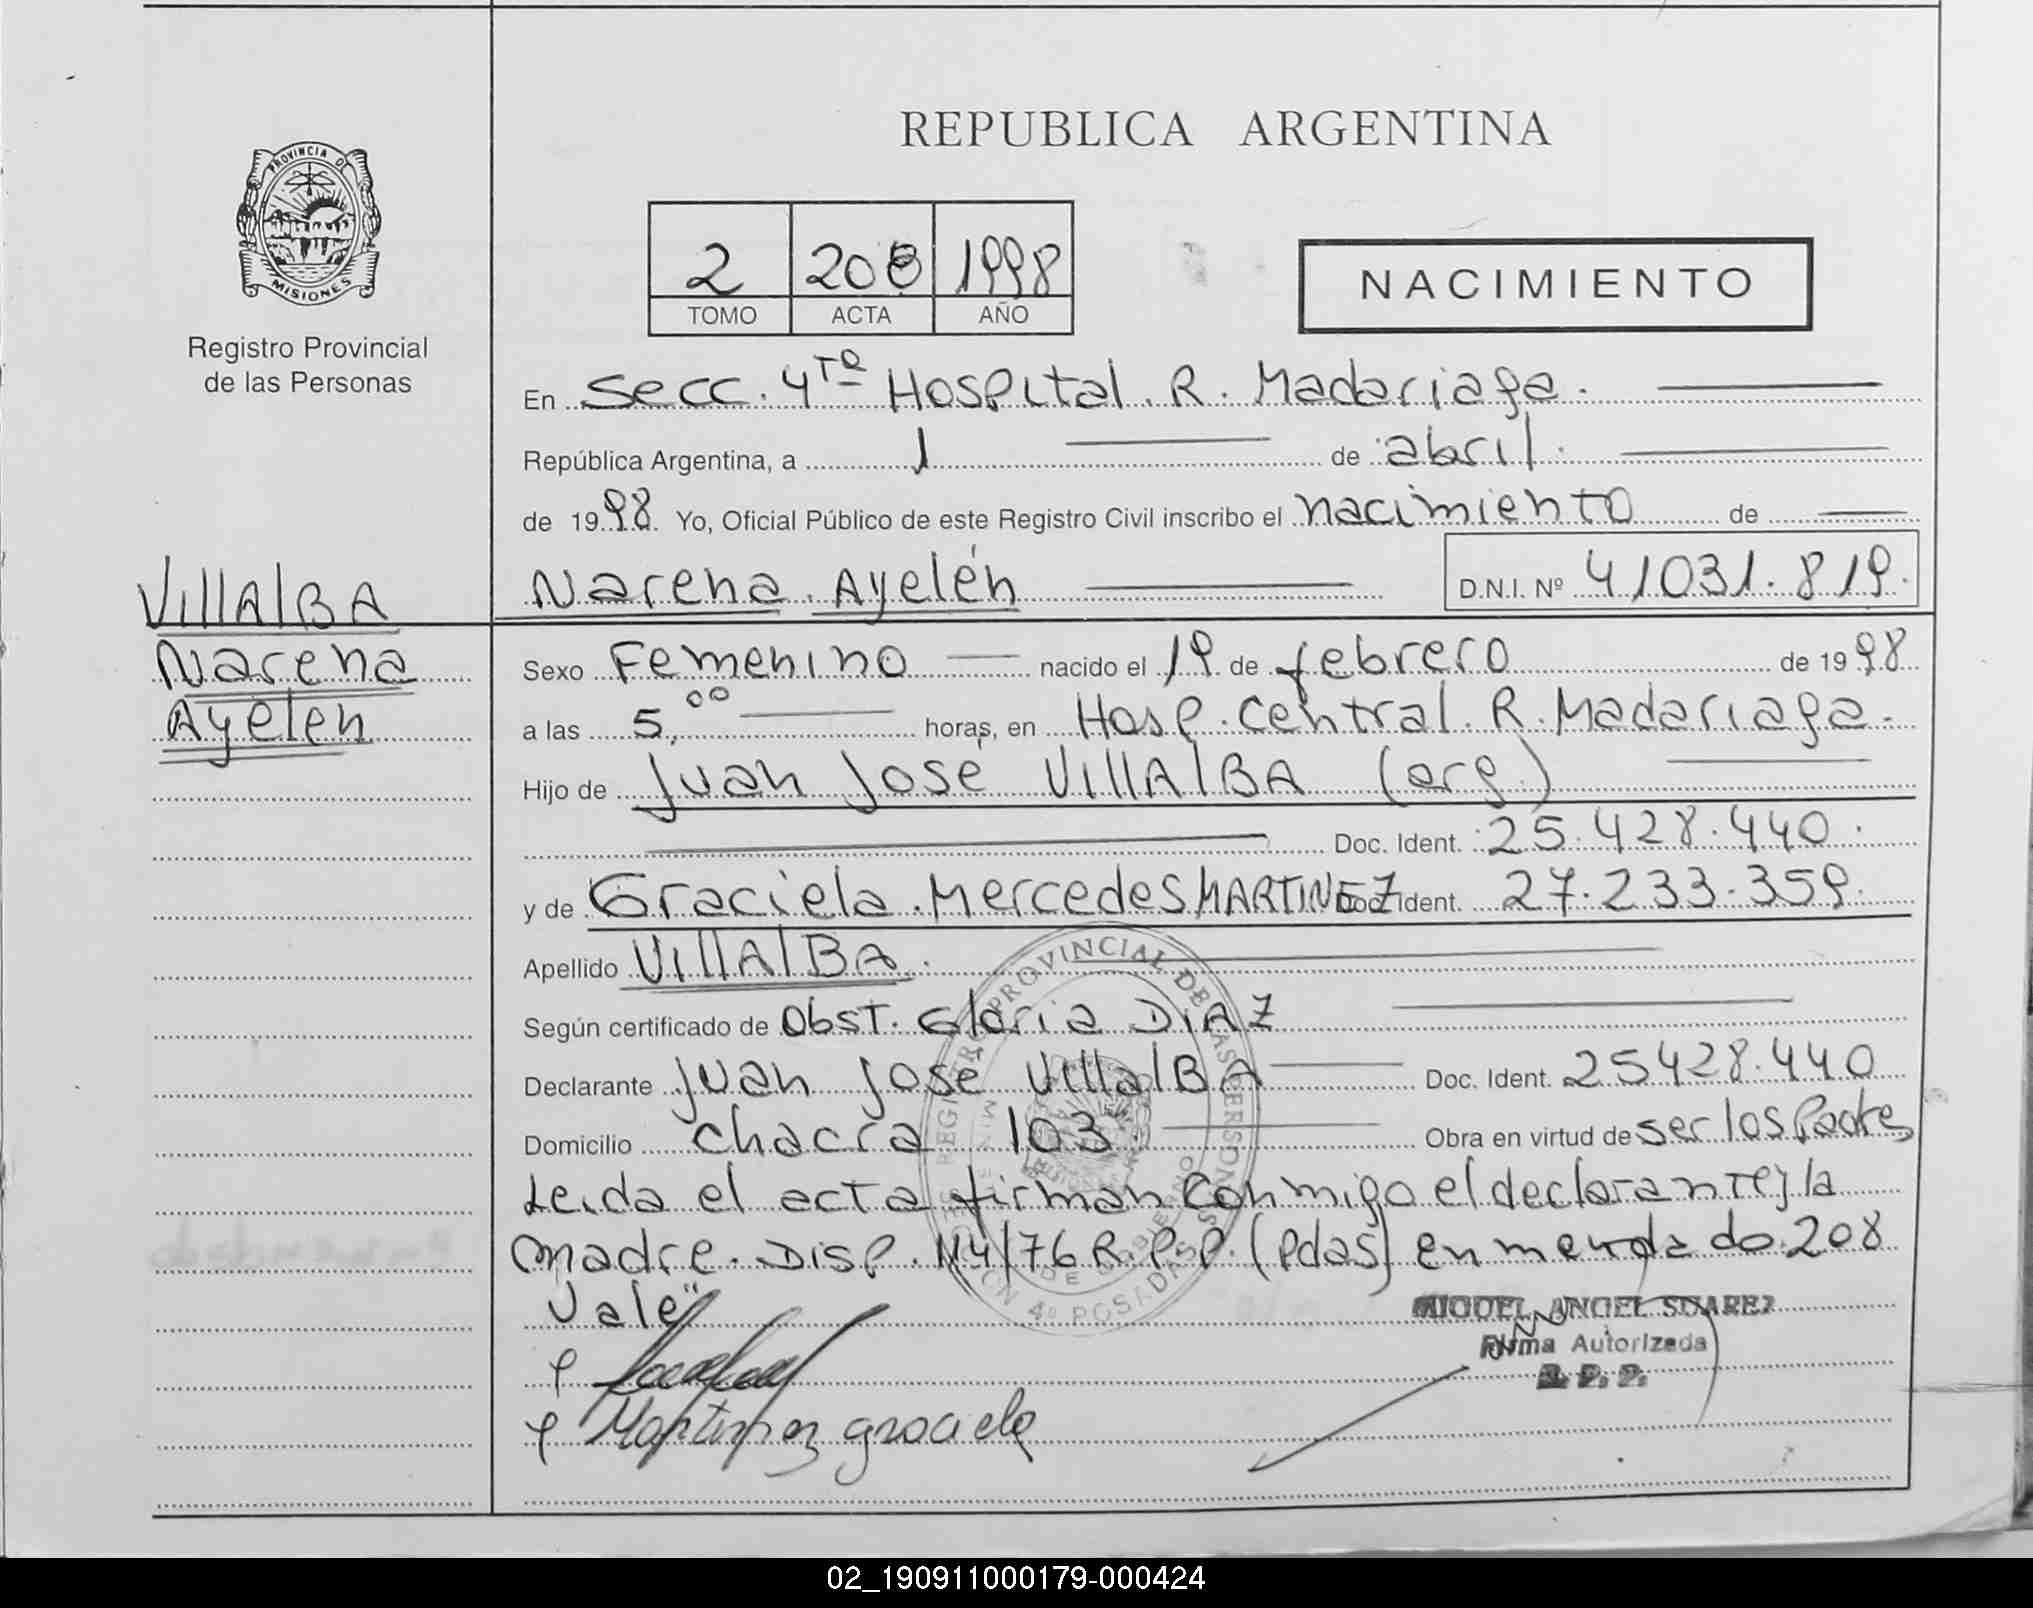 REPUBLICA ARGENTINA
PROVINCIA DE
MISIONES
Registro Provincial
de las Personas
2 208 1998
TOMO ACTA AÑO
NACIMIENTO
En Secc. 4ta Hospital. R. Madariaga.
República Argentina, a 1 de abril.
de 1998. Yo, Oficial Público de este Registro Civil inscribo el nacimiento de
Narena Ayelén D.N.I. Nº 41031.819.
VillAlBA
Narena
Ayelen
Sexo Femenino nacido el 19 de febrero de 1998
a las 5,00 horas, en Hosp. Central. R. Madariaga.
Hijo de Juan José VillAlBA (arg.)
Doc. Ident. 25.428.440.
y de Graciela Mercedes MARTINEZ Doc. Ident. 27.233.359.
Apellido VillAlBA.
Según certificado de Obst. Gloria DIAZ
Declarante Juan José VillalBA Doc. Ident. 25428.440
Domicilio Chacra 103. Obra en virtud de ser los Padres
Leida el acta firman conmigo el declarante y la
madre. Disp. Nº4/76 R.P.P. (Pdas) enmendado 208
Vale"
Martinez graciela
MIGUEL ANGEL SUAREZ
Firma Autorizada
R. P. P.
02_190911000179-000424